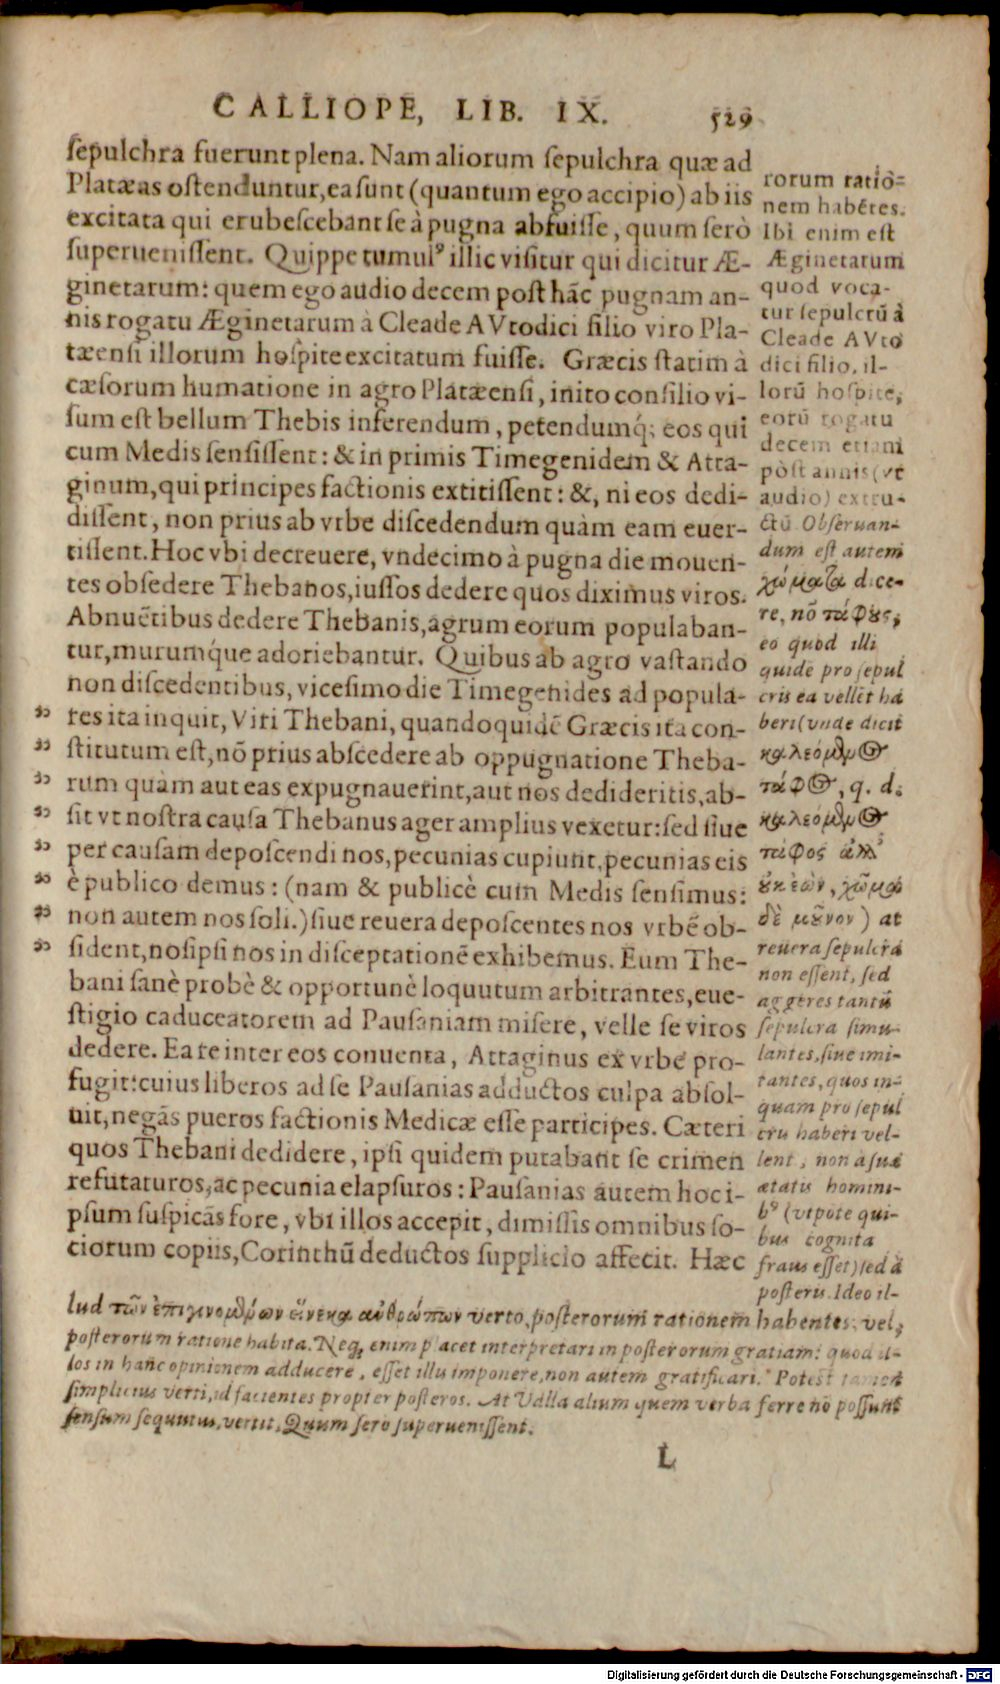 CALLIOPE, LIB. IX. 529
sepulchra fuerunt plena. Nam aliorum sepulchra quæ ad
Platæas ostenduntur, ea sunt (quantum ego accipio) ab iis
excitata qui erubescebant se à pugna abfuisse, quum serò
superuenissent. Quippe tumul⁹ illic visitur qui dicitur Æ-
ginetarum: quem ego audio decem post hãc pugnam an-
nis rogatu Æginetarum à Cleade AVtodici filio viro Pla-
tæensi illorum hospite excitatum fuisse. Græcis statim à
cæsorum humatione in agro Platæensi, inito consilio vi-
sum est bellum Thebis inferendum, petendumq́; eos qui
cum Medis sensissent: & in primis Timegenidem & Atta-
ginum, qui principes factionis extitissent: &, ni eos dedi-
dissent, non prius ab vrbe discedendum quàm eam euer-
tissent. Hoc vbi decreuere, vndecimo à pugna die mouen-
tes obsedere Thebanos, iussos dedere quos diximus viros.
Abnuẽtibus dedere Thebanis, agrum eorum populaban-
tur, murumq́ue adoriebantur. Quibus ab agro vastando
non discedentibus, vicesimo die Timegenides ad popula-
res ita inquit, Viri Thebani, quandoquidẽ Græcis ita con-
stitutum est, nõ prius abscedere ab oppugnatione Theba-
rum quàm aut eas expugnauerint, aut nos dedideritis, ab-
sit vt nostra causa Thebanus ager amplius vexetur: sed siue
per causam deposcendi nos, pecunias cupiunt, pecunias eis
è publico demus: (nam & publicè cum Medis sensimus:
non autem nos soli.) siue reuera deposcentes nos vrbẽ ob-
sident, nosipsi nos in disceptationẽ exhibemus. Eum The-
bani sanè probè & opportunè loquutum arbitrantes, eue-
stigio caduceatorem ad Pausaniam misere, velle se viros
dedere. Ea re inter eos conuenta, Attaginus ex vrbe pro-
fugit: cuius liberos ad se Pausanias adductos culpa absol-
uit, negãs pueros factionis Medicæ esse participes. Cæteri
quos Thebani dedidere, ipsi quidem putabant se crimen
refutaturos, ac pecunia elapsuros: Pausanias autem hoc i-
psum suspicãs fore, vbi illos accepit, dimissis omnibus so-
ciorum copiis, Corinthũ deductos supplicio affecit. Hæc
rorum ratio-
nem habẽtes.
Ibi enim est
Æginetarum
quod voca-
tur sepulcrũ à
Cleade AVto
dici filio, il-
lorũ hospite,
eorũ rogatu
decem etiam
pòst annis (vt
audio) extru-
ctũ. Obseruan-
dum est autem
χώματα dice-
re, nõ τάφȣς,
eo quod illi
quidẽ pro sepul
cris ea vellẽt ha
beri (vnde dicit
καλεόμενος
τάφος, q. d.
καλεόμενος
τάφος ἀλλ'
οὐκ ἐὼν, χῶμα
δὲ μοῦνον) at
reuera sepulcra
non essent, sed
aggeres tantũ
sepulcra simu-
lantes, siue imi-
tantes, quos in-
quam pro sepul
cru haberi vel-
lent, non a suæ
ætatis homini-
b⁹ (vtpote qui-
bus cognita
fraus esset) sed à
posteris. Ideo il-
lud τῶν ἐπιγινομένων εἵνεκα ἀνθρώπων verto, posterorum rationem habentes, vel,
posterorum ratione habita. Neq; enim placet interpretari in posterorum gratiam: quod il-
los in hanc opinionem adducere, esset illu imponere, non autem gratificari. Potest tamen
simplicius verti, id facientes propter posteros. At Valla alium quem verba ferre nõ possunt
sensum sequutus, vertit, Quum sero superuenissent.
L
Digitalisierung gefördert durch die Deutsche Forschungsgemeinschaft - DFG